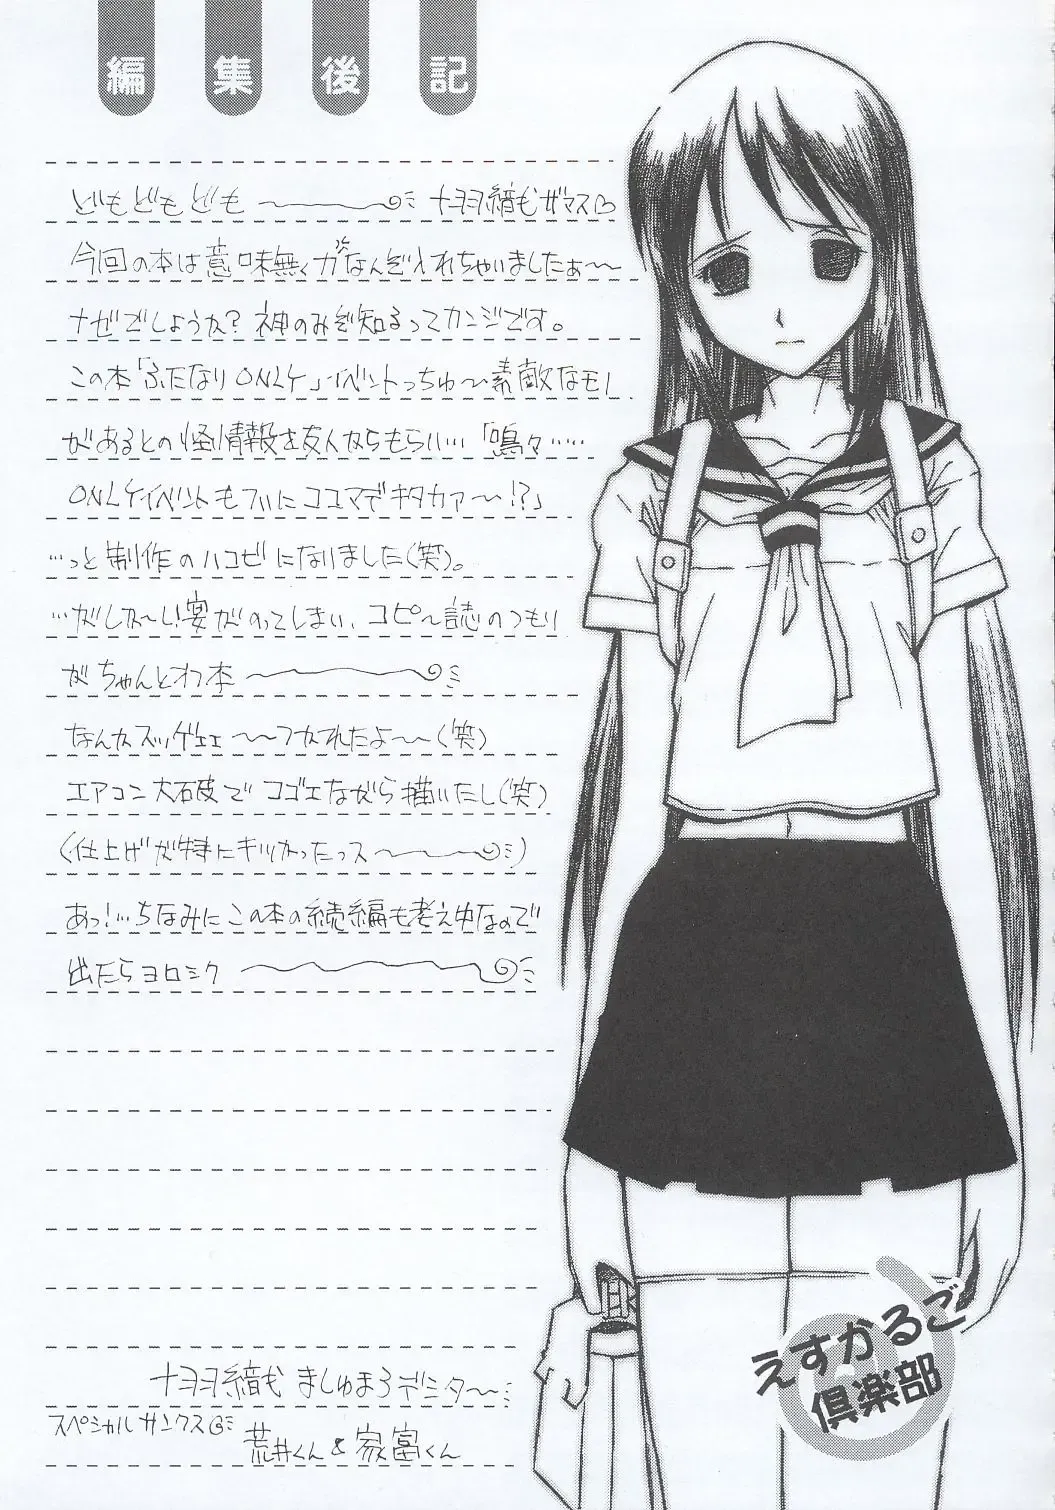 編集後記
どもどもども 十ヨヲ織もザマス
今回の本は意味無く力なんぞいれちゃいましたぁ〜
ナゼでしょうか？神のみぞ知るってカンジです。
この本「ふたなりONLY」イベントっちゅ〜素敵なモノ
があるとの怪情報を友人からもらい…「嗚々……
ONLYイベントもついにココマデキタカァ〜!?」
…っと制作のハコビになりました(笑)。
…がしか〜し!宴がのってしまい、コピ〜誌のつもり
がちゃんとオフ本
なんかズッゲェェ〜〜つかれたよ〜〜(笑)
エアコン大破でコゴエながら描いたし(笑)
(仕上げが特にキツかったっス)
あっ!…ちなみにこの本の続編も考え中なので
出たらヨロシク
ましゅまろデニタ〜
スペシャルサンクス
荒井くん & 家富くん
えすかるご
倶楽部